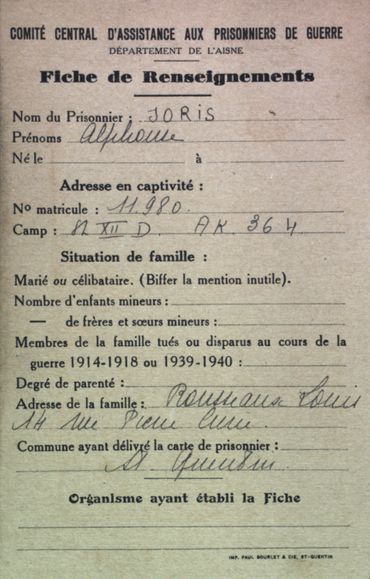 COMITÉ CENTRAL D'ASSISTANCE AUX PRISONNIERS DE GUERRE
DÉPARTEMENT DE L'AISNE
Fiche de Renseignements
Nom du Prisonnier : JORIS
Prénoms Alphonse
Né le à
Adresse en captivité :
No matricule : 11.980.
Camp : St XII D. AK 364
Situation de famille :
Marié ou célibataire. (Biffer la mention inutile).
Nombre d'enfants mineurs :
— de frères et sœurs mineurs :
Membres de la famille tués ou disparus au cours de la
guerre 1914-1918 ou 1939-1940 :
Degré de parenté :
Adresse de la famille : Rousseaux Louis
14 rue Pierre Curie.
Commune ayant délivré la carte de prisonnier :
St Quentin.
Organisme ayant établi la Fiche
IMP. PAUL BOURLET & CIE, ST-QUENTIN